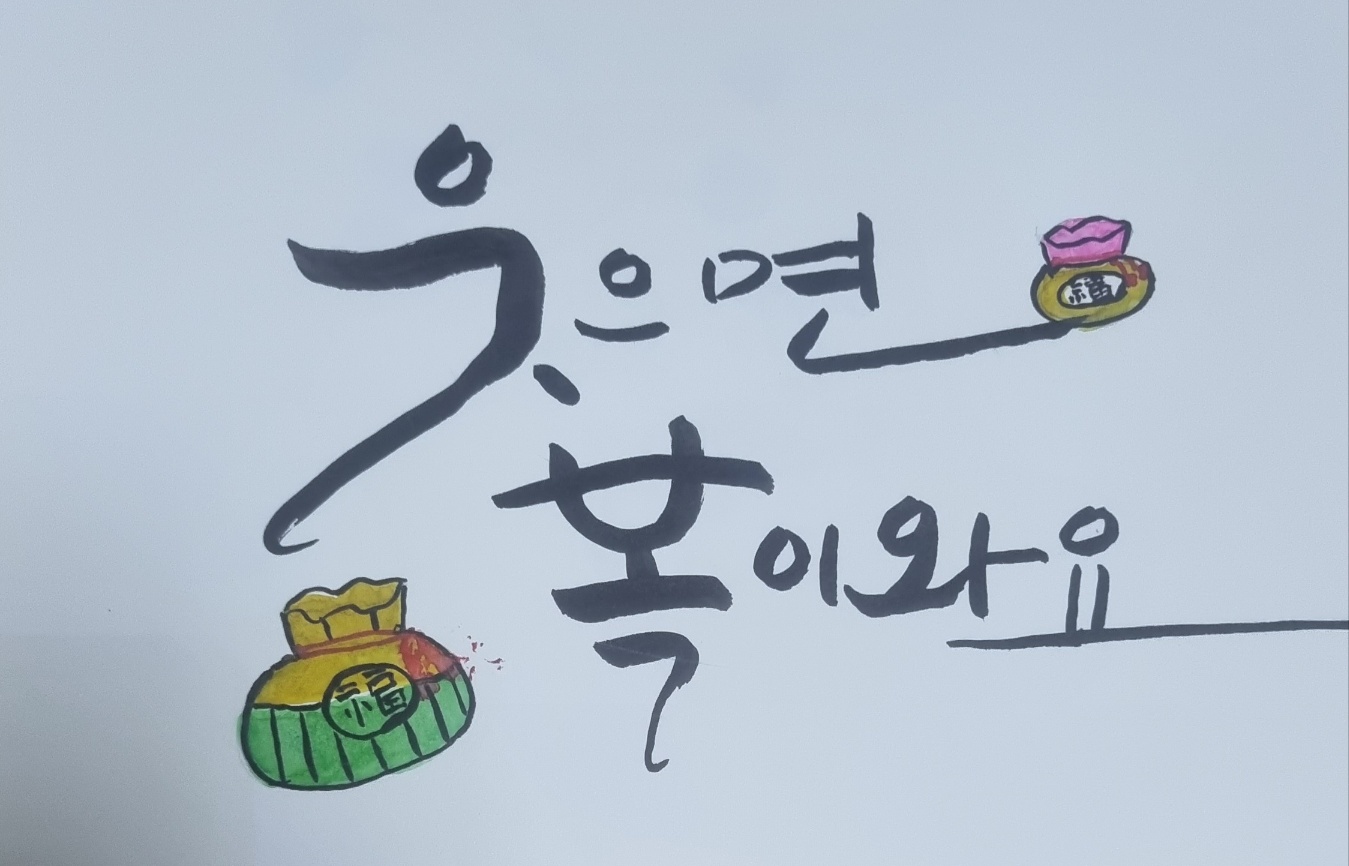 웃으면
福
복이와요
福